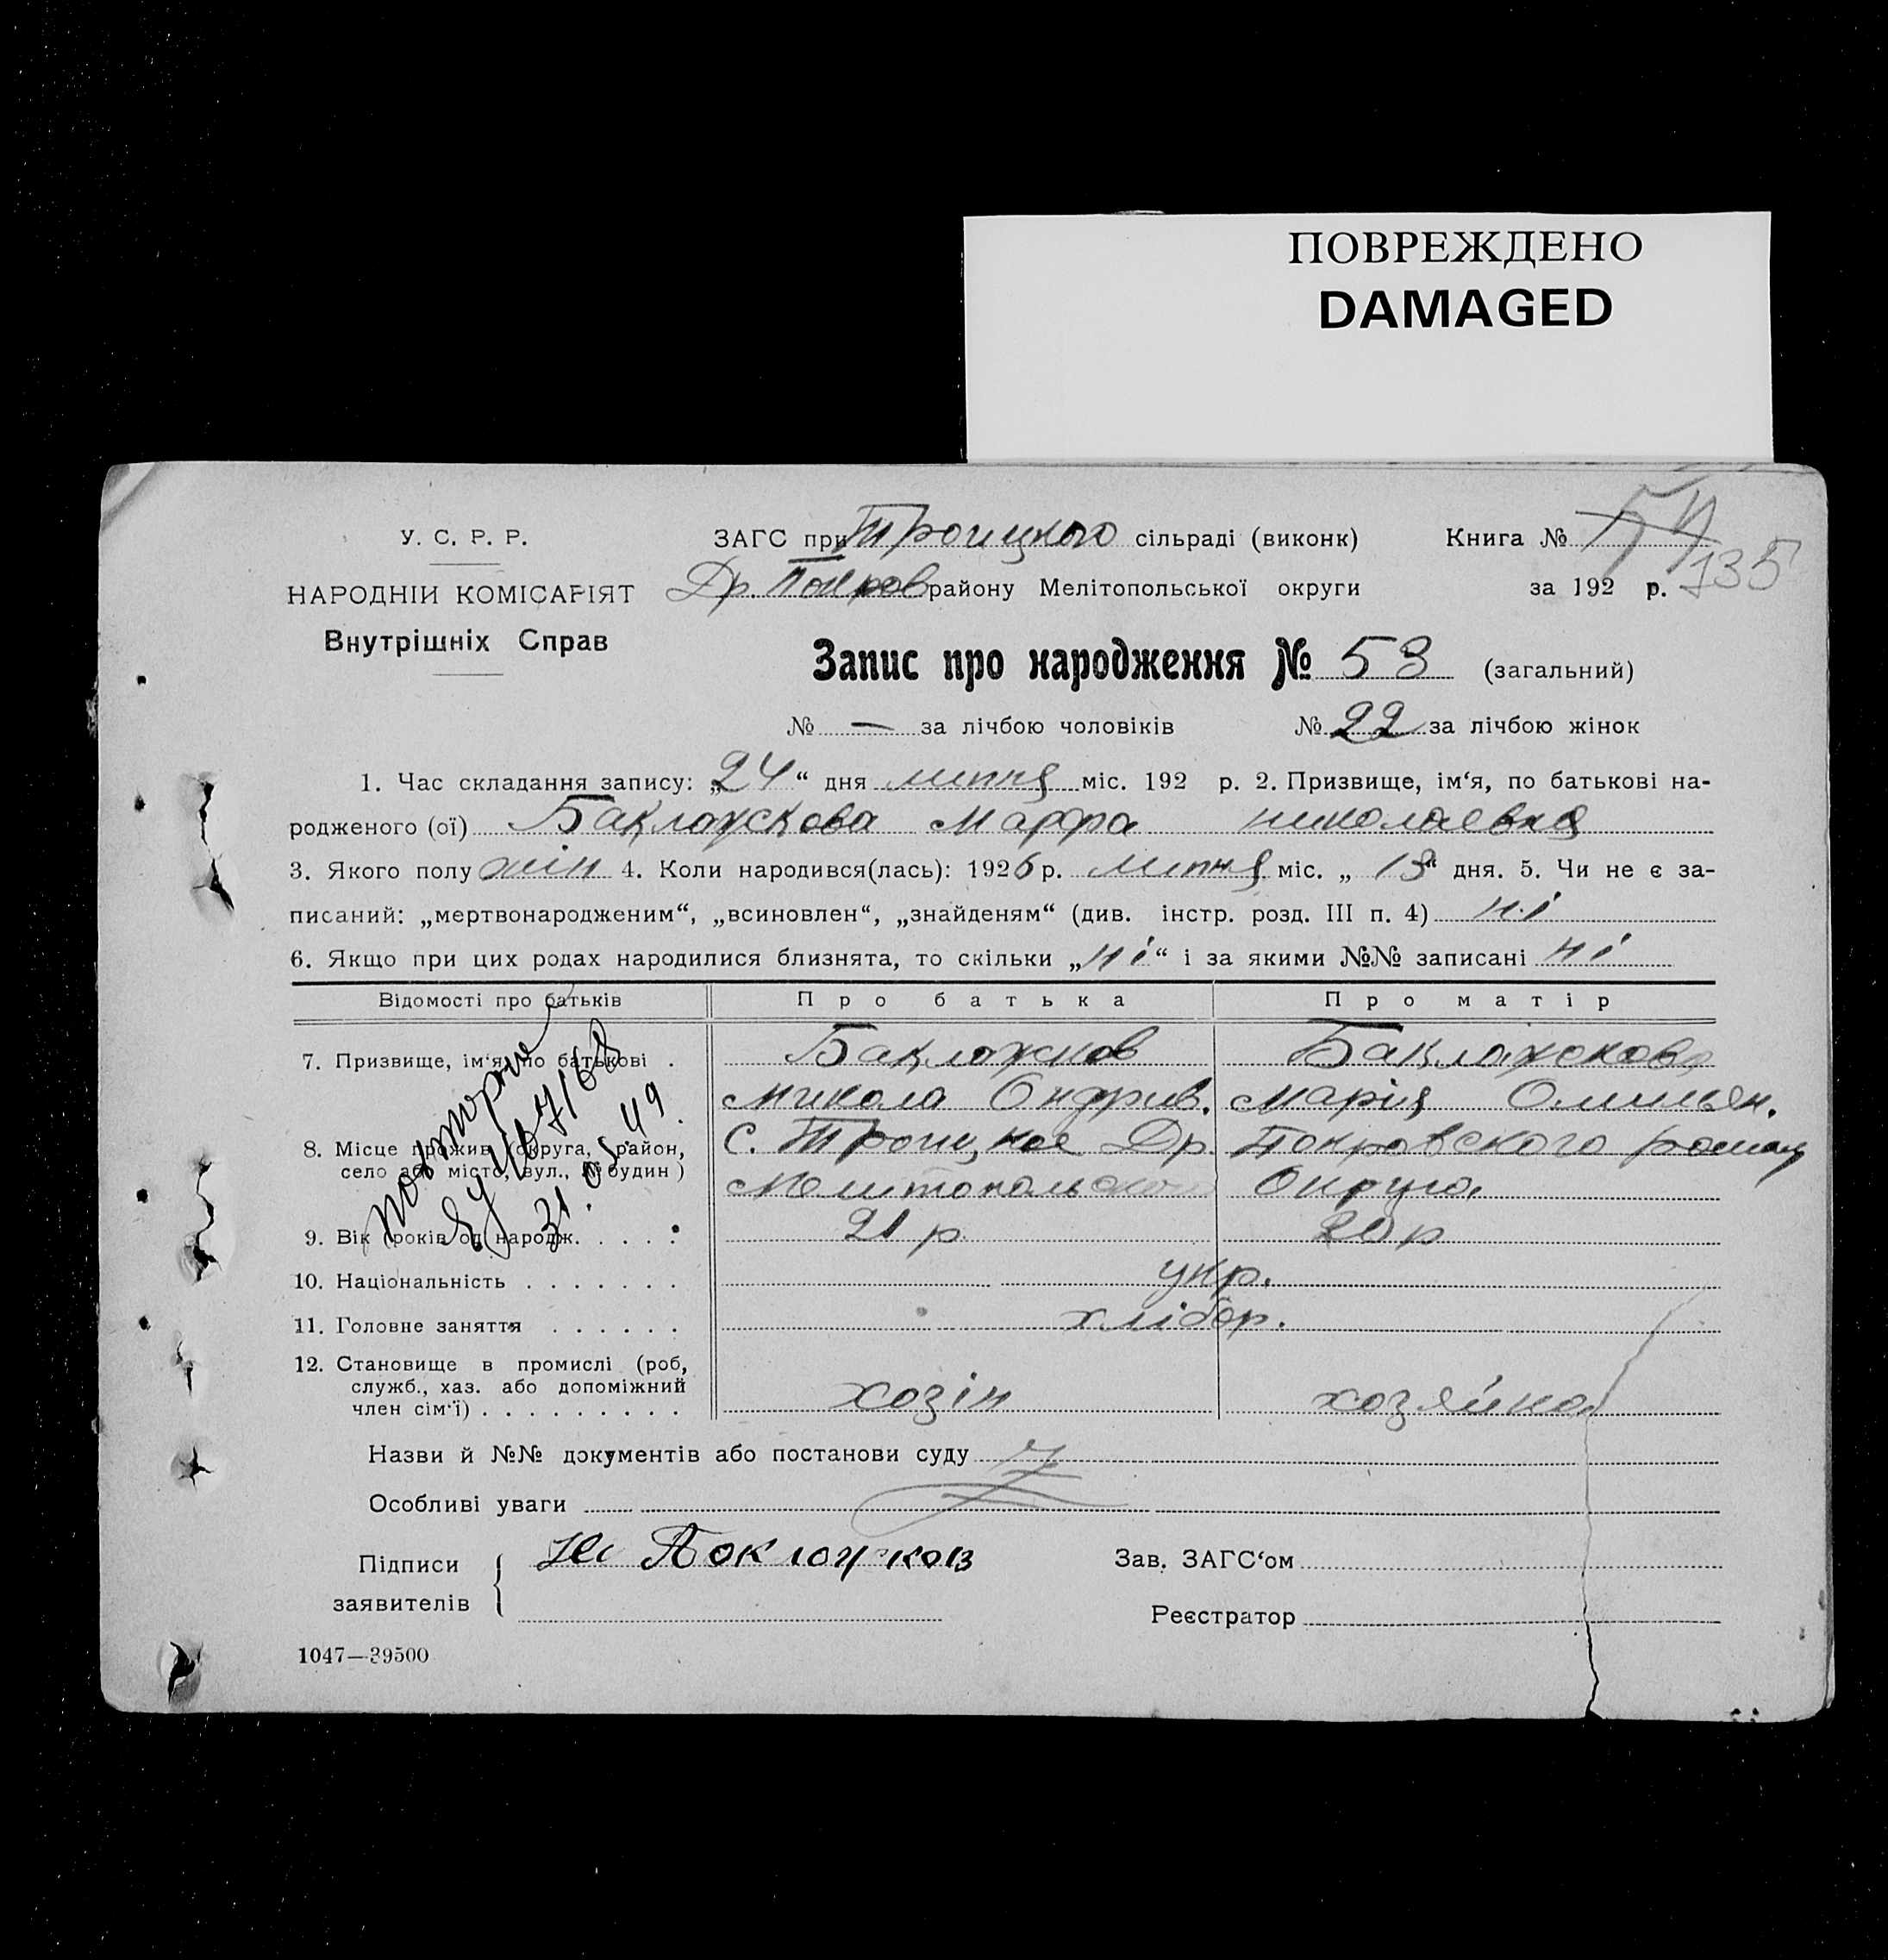 ПОВРЕЖДЕНО
DAMAGED
У. С. Р. Р.
НАРОДНІЙ КОМІСАРІЯТ
Внутрішніх Справ
ЗАГС при Троицкого сільраді (виконк)
Др. Покров району Мелітопольської округи
Книга №
за 192 р. 135
Запис про народження № 53 (загальний)
№ — за лічбою чоловіків № 22 за лічбою жінок
1. Час складання запису: „24“ дня липня міс. 192 р. 2. Призвище, ім‘я, по батькові на-
родженого (ої) Баклажкова Марфа николаевна
3. Якого полу жін 4. Коли народився(лась): 1926 р. липня міс. „13“ дня. 5. Чи не є за-
писаний: „мертвонародженим“, „всиновлен“, „знайденям“ (див. інстр. розд. III п. 4) ні
6. Якщо при цих родах народилися близнята, то скільки „ні“ і за якими №№ записані ні
Відомості про батьків Про батька Про матір
7. Призвище, ім‘я, по батькові . Баклажков Баклажкова
Микола Ондрив. Марія Омильян.
8. Місце прожив. (округа, район, С. Троицкое Др. Покровского
село або місто, вул., № будин) Мелитопольской Округа
9. Вік (років од народж. . . . . 21 р. 20 р
10. Національність . . . . . . . укр.
11. Головне заняття . . . . . . хлібор.
12. Становище в промислі (роб,
служб., хаз. або допоміжний
член сім‘ї) . . . . . . . . . хозін хозяйка
повторне
31.
49.
Назви й №№ документів або постанови суду
Особливі уваги
Підписи
заявителів
Зав. ЗАГС‘ом
Реєстратор
1047—39500